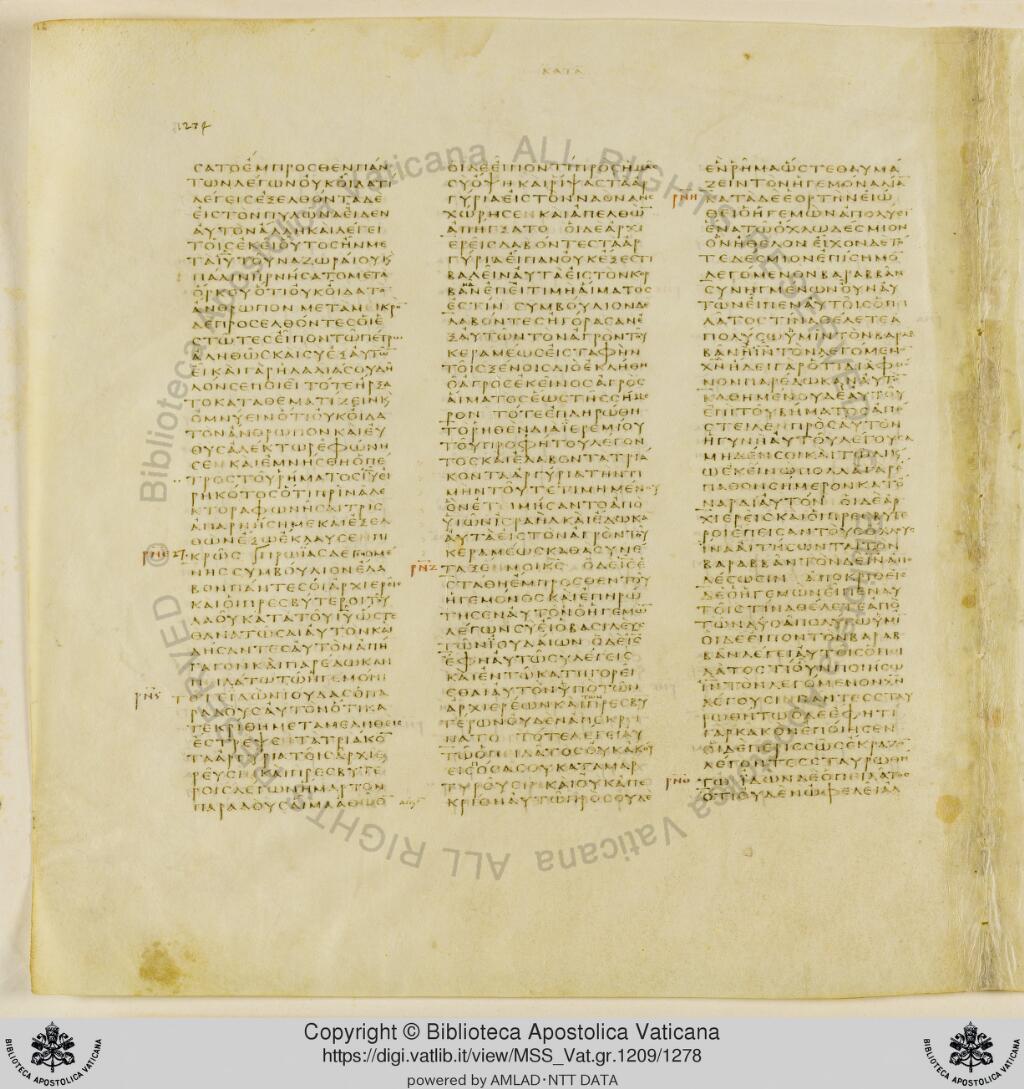 ΚΑΤΑ
1274
ϹΑΤΟΕΜΠΡΟϹΘΕΝΠΑΝ
ΤΩΝΛΕΓΩΝΟΥΚΟΙΔΑΤΙ
ΛΕΓΕΙϹΕΞΕΛΘΟΝΤΑΔΕ
ΕΙϹΤΟΝΠΥΛΩΝΑΕΙΔΕΝ
ΑΥΤΟΝΑΛΛΗΚΑΙΛΕΓΕΙ
ΤΟΙϹΕΚΕΙΟΥΤΟϹΗΝΜΕ
ΤΑΙΥΤΟΥΝΑΖΩΡΑΙΟΥΚ
ΠΑΛΙΝΗΡΝΗϹΑΤΟΜΕΤΑ
ΟΡΚΟΥΟΤΙΟΥΚΟΙΔΑΤΟ
ΑΝΘΡΩΠΟΝ ΜΕΤΑΜΕΙΚΡΟ
ΔΕΠΡΟϹΕΛΘΟΝΤΕϹΟΙΕ
ϹΤΩΤΕϹΕΙΠΟΝΤΩΠΕΤΡΩ
ΑΛΗΘΩϹΚΑΙϹΥΕΞΑΥΤΩ
ΕΙΚΑΙΓΑΡΗΛΑΛΙΑϹΟΥΔΗ
ΛΟΝϹΕΠΟΙΕΙΤΟΤΕΗΡΞΑ
ΤΟΚΑΤΑΘΕΜΑΤΙΖΕΙΝΚ
ΟΜΝΥΕΙΝΟΤΙΟΥΚΟΙΔΑ
ΤΟΝΑΝΘΡΩΠΟΝΚΑΙΕΥ
ΘΥϹΑΛΕΚΤΩΡΕΦΩΝΗ
ϹΕΝΚΑΙΕΜΝΗϹΘΗΟΠΕ
ΤΡΟϹΤΟΥΡΗΜΑΤΟϹΙΥΕΙ
ΡΗΚΟΤΟϹΟΤΙΠΡΙΝΑΛΕ
ΚΤΟΡΑΦΩΝΗϹΑΙΤΡΙϹ
ΑΠΑΡΝΗϹΗΜΕΚΑΙΕΞΕΛ
ΘΩΝΕΞΩΕΚΛΑΥϹΕΝΠΙ
ΡΝΕ 27. ΚΡΩϹ ΠΡΩΙΑϹΔΕΓΕΝΟΜΕ
ΝΗϹϹΥΜΒΟΥΛΙΟΝΕΛΑ
ΒΟΝΠΑΝΤΕϹΟΙΑΡΧΙΕΡΕΙϹ
ΚΑΙΟΙΠΡΕϹΒΥΤΕΡΟΙΤΟΥ
ΛΑΟΥΚΑΤΑΤΟΥΙΥΩϹΤΕ
ΘΑΝΑΤΩϹΑΙΑΥΤΟΝΚΑΙ
ΔΗϹΑΝΤΕϹΑΥΤΟΝΑΠΗ
ΓΑΓΟΝΚΑΙΠΑΡΕΔΩΚΑΝ
ΠΙΛΑΤΩΤΩΗΓΕΜΟΝΙ
ΡΝϚ ΤΟΤΕΙΔΩΝΙΟΥΔΑϹΟΠΑ
ΡΑΔΟΥϹΑΥΤΟΝΟΤΙΚΑ
ΤΕΚΡΙΘΗΜΕΤΑΜΕΛΗΘΕΙϹ
ΕϹΤΡΕΨΕΝΤΑΤΡΙΑΚΟ
ΤΑΑΡΓΥΡΙΑΤΟΙϹΑΡΧΙΕ
ΡΕΥϹΙΝΚΑΙΠΡΕϹΒΥΤΕ
ΡΟΙϹΛΕΓΩΝΗΜΑΡΤΟΝ
ΠΑΡΑΔΟΥϹΑΙΜΑΑΘΩΟ
ΟΙΔΕΕΙΠΟΝΤΙΠΡΟϹΗΜΑϹ
ϹΥΟΨΗΚΑΙΡΙΨΑϹΤΑΑΡ
ΓΥΡΙΑΕΙϹΤΟΝΝΑΟΝΑΝΕ
ΧΩΡΗϹΕΝΚΑΙΑΠΕΛΘΩ
ΑΠΗΓΞΑΤΟ ΟΙΔΕΑΡΧΙ
ΕΡΕΙϹΛΑΒΟΝΤΕϹΤΑΑΡ
ΓΥΡΙΑΕΙΠΑΝΟΥΚΕΞΕϹΤΙ
ΒΑΛΕΙΝΑΥΤΑΕΙϹΤΟΝΚΟΡ
ΒΑΝΕΠΕΙΤΙΜΗΑΙΜΑΤΟϹ
ΕϹΤΙΝ ϹΥΜΒΟΥΛΙΟΝΔΕ
ΛΑΒΟΝΤΕϹΗΓΟΡΑϹΑΝΕ
ΞΑΥΤΩΝΤΟΝΑΓΡΟΝΤΟΥ
ΚΕΡΑΜΕΩϹΕΙϹΤΑΦΗΝ
ΤΟΙϹΞΕΝΟΙϹΔΙΟΕΚΛΗΘΗ
ΟΑΓΡΟϹΕΚΕΙΝΟϹΑΓΡΟϹ
ΑΙΜΑΤΟϹΕΩϹΤΗϹϹΗΜΕ
ΡΟΝ ΤΟΤΕΕΠΛΗΡΩΘΗ
ΤΟΡΗΘΕΝΔΙΑΙΕΡΕΜΙΟΥ
ΤΟΥΠΡΟΦΗΤΟΥΛΕΓΟΝ
ΤΟϹΚΑΙΕΛΑΒΟΝΤΑΤΡΙΑ
ΚΟΝΤΑΑΡΓΥΡΙΑΤΗΝΤΙ
ΜΗΝΤΟΥΤΕΤΙΜΗΜΕΝΟΥ
ΟΝΕΤΙΜΗϹΑΝΤΟΑΠΟ
ΥΙΩΝΙϹΡΑΗΛΚΑΙΕΔΩΚΑ
ΑΥΤΑΕΙϹΤΟΝΑΓΡΟΝΤΟΥ
ΚΕΡΑΜΕΩϹΚΑΘΑϹΥΝΕ
ΡΝΖ ΤΑΞΕΝΜΟΙΚϹ ΟΔΕΙϹΕ
ϹΤΑΘΗΕΜΠΡΟϹΘΕΝΤΟΥ
ΗΓΕΜΟΝΟϹΚΑΙΕΠΗΡΩ
ΤΗϹΕΝΑΥΤΟΝΟΗΓΕΜΩ
ΛΕΓΩΝϹΥΕΙΟΒΑϹΙΛΕΥϹ
ΤΩΝΙΟΥΔΑΙΩΝ ΟΔΕΙϹ
ΕΦΗΑΥΤΩϹΥΛΕΓΕΙϹ
ΚΑΙΕΝΤΩΚΑΤΗΓΟΡΕΙ
ϹΘΑΙΑΥΤΟΝΥΠΟΤΩΝ
ΑΡΧΙΕΡΕΩΝΚΑΙΠΡΕϹΒΥ
ΤΕΡΩΝΟΥΔΕΝΑΠΕΚΡΙ
ΝΑΤΟ ΤΟΤΕΛΕΓΕΙΑΥ
ΤΩΟΠΕΙΛΑΤΟϹΟΥΚΑΚΟΥ
ΕΙϹΠΟϹΑϹΟΥΚΑΤΑΜΑΡ
ΤΥΡΟΥϹΙΝΚΑΙΟΥΚΑΠΕ
ΚΡΙΘΗΑΥΤΩΠΡΟϹΟΥΔΕ
ΕΝΡΗΜΑΩϹΤΕΘΑΥΜΑ
ΖΕΙΝΤΟΝΗΓΕΜΟΝΑΛΙΑ
ΡΝΗ ΚΑΤΑΔΕΕΟΡΤΗΝΕΙΩ
ΘΕΙΟΗΓΕΜΩΝΑΠΟΛΥΕΙ
ΕΝΑΤΩΟΧΛΩΔΕϹΜΙΟΝ
ΟΝΗΘΕΛΟΝΕΙΧΟΝΔΕΤΟ
ΤΕΔΕϹΜΙΟΝΕΠΙϹΗΜΟ
ΛΕΓΟΜΕΝΟΝΒΑΡΑΒΒΑΝ
ϹΥΝΗΓΜΕΝΩΝΟΥΝΑΥ
ΤΩΝΕΙΠΕΝΑΥΤΟΙϹΟΠΙ
ΛΑΤΟϹΤΙΝΑΘΕΛΕΤΕΑ
ΠΟΛΥϹΩΥΜΙΝΤΟΝΒΑΡΑΒ
ΒΑΝΗΙΝΤΟΝΛΕΓΟΜΕΝΟ
ΧΝΗΔΕΙΓΑΡΟΤΙΔΙΑΦΘΟ
ΝΟΝΠΑΡΕΔΩΚΑΝΑΥΤΟ
ΚΑΘΗΜΕΝΟΥΔΕΑΥΤΟΥ
ΕΠΙΤΟΥΒΗΜΑΤΟϹΑΠΕ
ϹΤΕΙΛΕΝΠΡΟϹΑΥΤΟΝ
ΗΓΥΝΗΑΥΤΟΥΛΕΓΟΥϹΑ
ΜΗΔΕΝϹΟΙΚΑΙΤΩΔΙΚΑΙ
ΩΕΚΕΙΝΩΠΟΛΛΑΓΑΡΕ
ΠΑΘΟΝϹΗΜΕΡΟΝΚΑΤΟ
ΝΑΡΔΙΑΥΤΟΝ ΟΙΔΕΑΡ
ΧΙΕΡΕΙϹΚΑΙΟΙΠΡΕϹΒΥΤΕ
ΡΟΙΕΠΕΙϹΑΝΤΟΥϹΟΧΛΟΥϹ
ΙΝΑΑΙΤΗϹΩΝΤΑΙΤΟΝ
ΒΑΡΑΒΒΑΝΤΟΝΔΕΙΝΑΠΟ
ΛΕϹΩϹΙΝ ΑΠΟΚΡΙΘΕΙϹ
ΔΕΟΗΓΕΜΩΝΕΙΠΕΝΑΥ
ΤΟΙϹΤΙΝΑΘΕΛΕΤΕΑΠΟ
ΤΩΝΔΥΟΑΠΟΛΥϹΩΥΜΙ
ΟΙΔΕΕΙΠΟΝΤΟΝΒΑΡΑΒ
ΒΑΝΛΕΓΕΙΑΥΤΟΙϹΟΠΙ
ΛΑΤΟϹΤΙΟΥΝΠΟΙΗϹΩ
ΙΝΤΟΝΛΕΓΟΜΕΝΟΝΧΝ
ΛΕΓΟΥϹΙΝΠΑΝΤΕϹϹΤΑΥ
ΡΩΘΗΤΩΟΔΕΕΦΗΤΙ
ΓΑΡΚΑΚΟΝΕΠΟΙΗϹΕΝ
ΟΙΔΕΠΕΡΙϹϹΩϹΕΚΡΑΖΟ
ΛΕΓΟΝΤΕϹϹΤΑΥΡΩΘΗ
ΡΝΘ ΤΩ ΙΔΩΝΔΕΟΠΕΙΛΑΤΟϹ
ΟΤΙΟΥΔΕΝΩΦΕΛΕΙΑΛ
© Biblioteca Apostolica Vaticana ALL RIGHTS RESERVED
BIBLIOTECA APOSTOLICA VATICANA
Copyright © Biblioteca Apostolica Vaticana
https://digi.vatlib.it/view/MSS_Vat.gr.1209/1278
powered by AMLAD·NTT DATA
BIBLIOTECA APOSTOLICA VATICANA